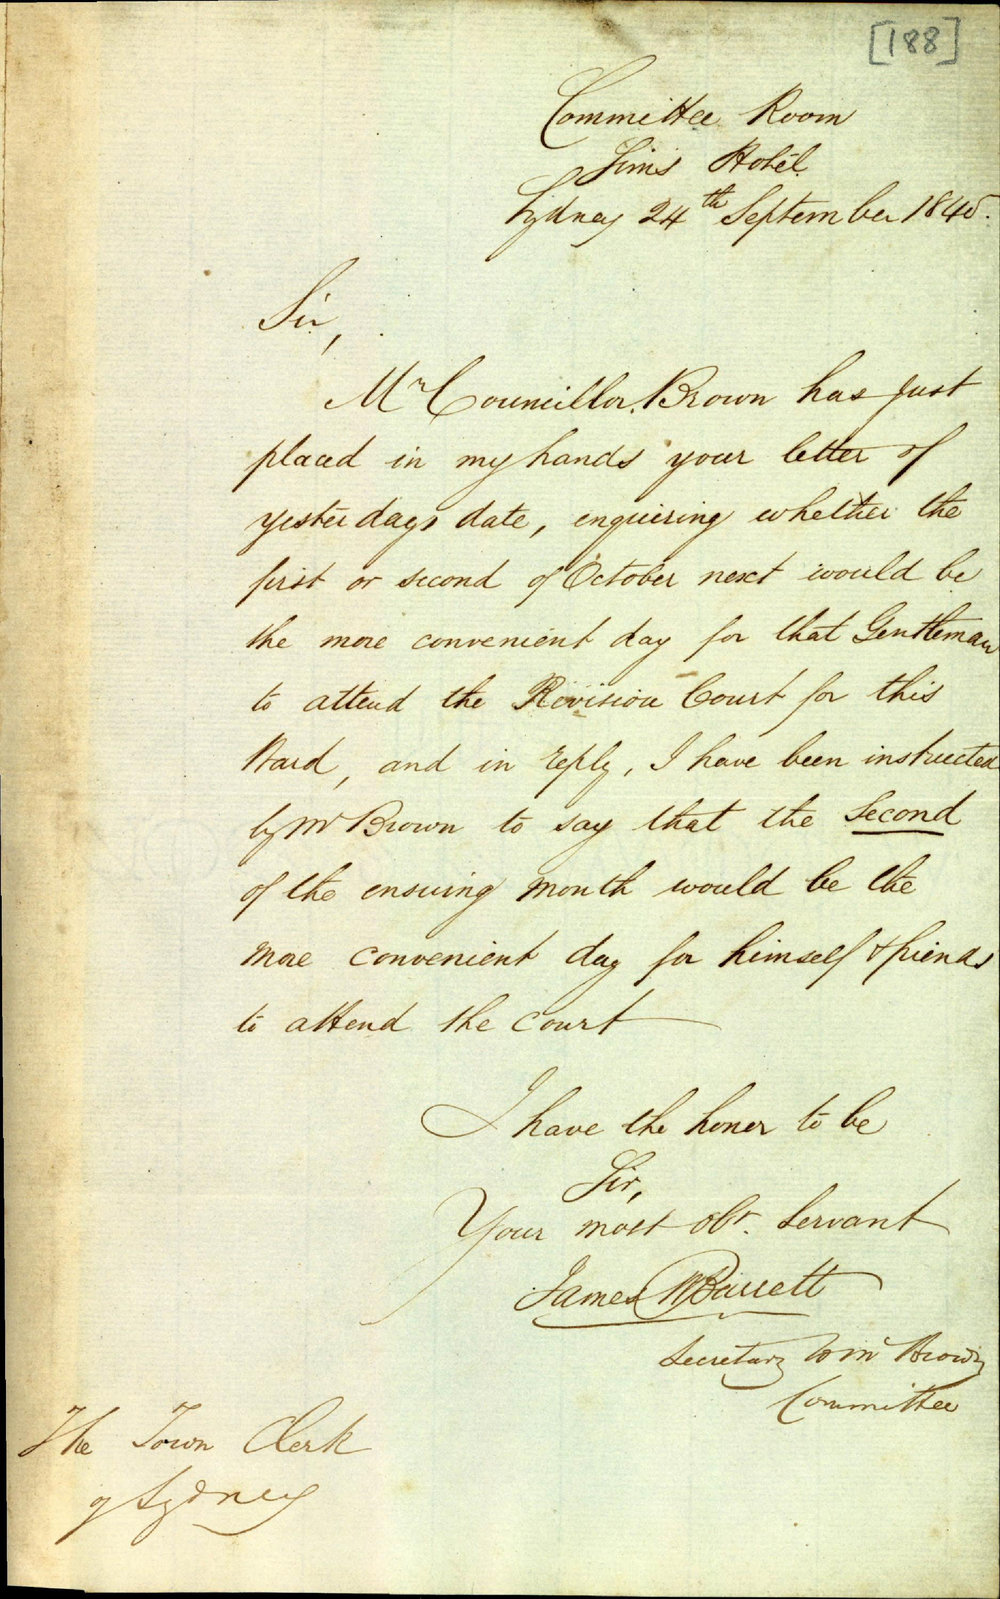 [188]
Committee Room
Sims Hotel
Sydney 24th September 1845.
Sir,
Mr Councillor Brown has just
placed in my hands your letter of
yesterdays date, enquiring whether the
first or second of October next would be
the more convenient day for that Gentleman
to attend the Revision Court for this
Ward, and in reply, I have been instructed
by Mr Brown to say that the Second
of the ensuing month would be the
more convenient day for himself & friends
to attend the court
I have the honor to be
Sir,
Your most obt. Servant
James Barrett
Secretary to Mr Brown's
Committee
The Town Clerk
of Sydney